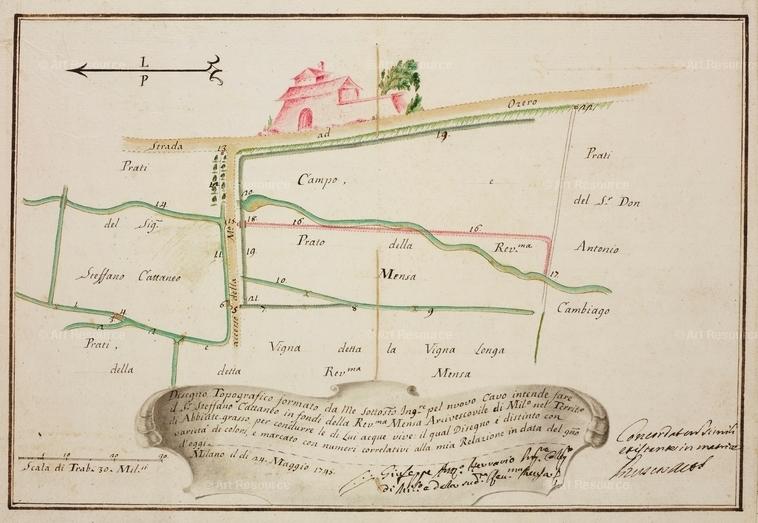 © Art Resource
© Art Resource
© Art Resource
L
P
Strada ad Ozero
13.
19.
Prati
Campo. e
Prati
12.
20.
14.
del Sigr.
15.
18.
16.
16.
del Sr. Don
11.
Prato della Rev.ma
Antonio
19.
Steffano Cattaneo
Mensa
17.
10.
Cambiago
accesso della
1.
6.
5.
21.
7.
8.
9.
4.
2.
Prati
Vigna detta la Vigna Longa
della detta Rev.ma Mensa
Disegno Topografico formato da Me Sottostto. Ingre. pel nuovo Cavo intende fare
il Sr. Steffano Cattaneo in fondi della Rev.ma Mensa Arcivescovile di Milo. nel Territo
di Abbiate grasso per condurre le di Lui acque vive: il qual Disegno è distinto con
varietà di colori, e marcato con numeri correlativi alla mia Relazione in data del gno
d'oggi.
Milano il dì 24. Maggio 1745.
Giuseppe Ingre.
di Milo. e della sudta. Rev.ma Mensa
Scala di Trab. 30. Mil.si
10
20
30
Concordat cum simili
existente in matrice
© Art Resource
© Art Resource
© Art Resource